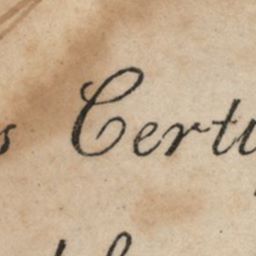 s Certi